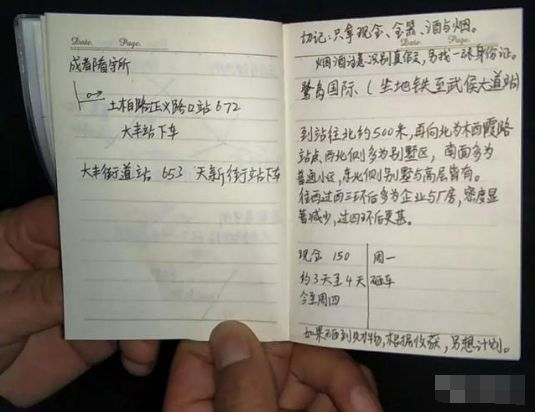 Date.    Page.
成都看守所
土柏路正义路口站 672
大丰站下车
大丰街道站 653 天新街站下车
切记:只拿现金、金器、酒与烟。
Date.    Page.
烟酒注意识别真假,另找一张身份证。
鹭岛国际、(坐地铁至武侯大道站)
到站往北约500米,再向北为木西霞路
站点,西北侧多为别墅区,南面多为
普通小区,东北侧别墅与高层皆有。
往西过西三环后多为企业与厂房,密度显
著减少,过四环后更甚。
现金 150 周一
约3天至4天 砸车
今至周四
如果不到财物,根据收获,另想计划。